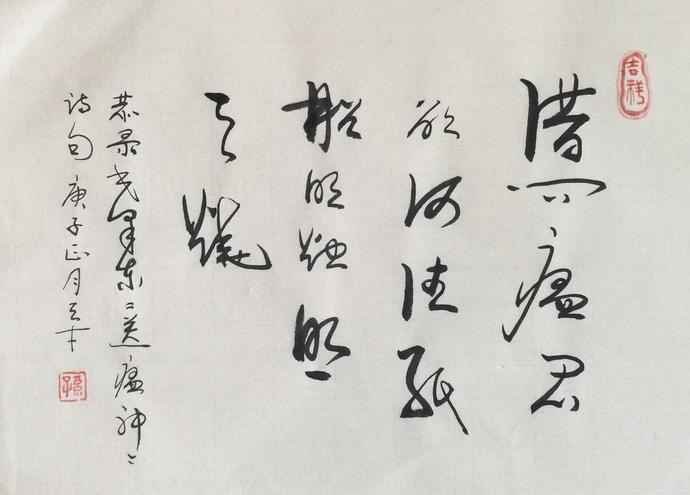 吉祥
借问瘟君
欲何往纸
船明烛照
天烧
恭录毛泽东《送瘟神》
诗句 庚子正月
孫